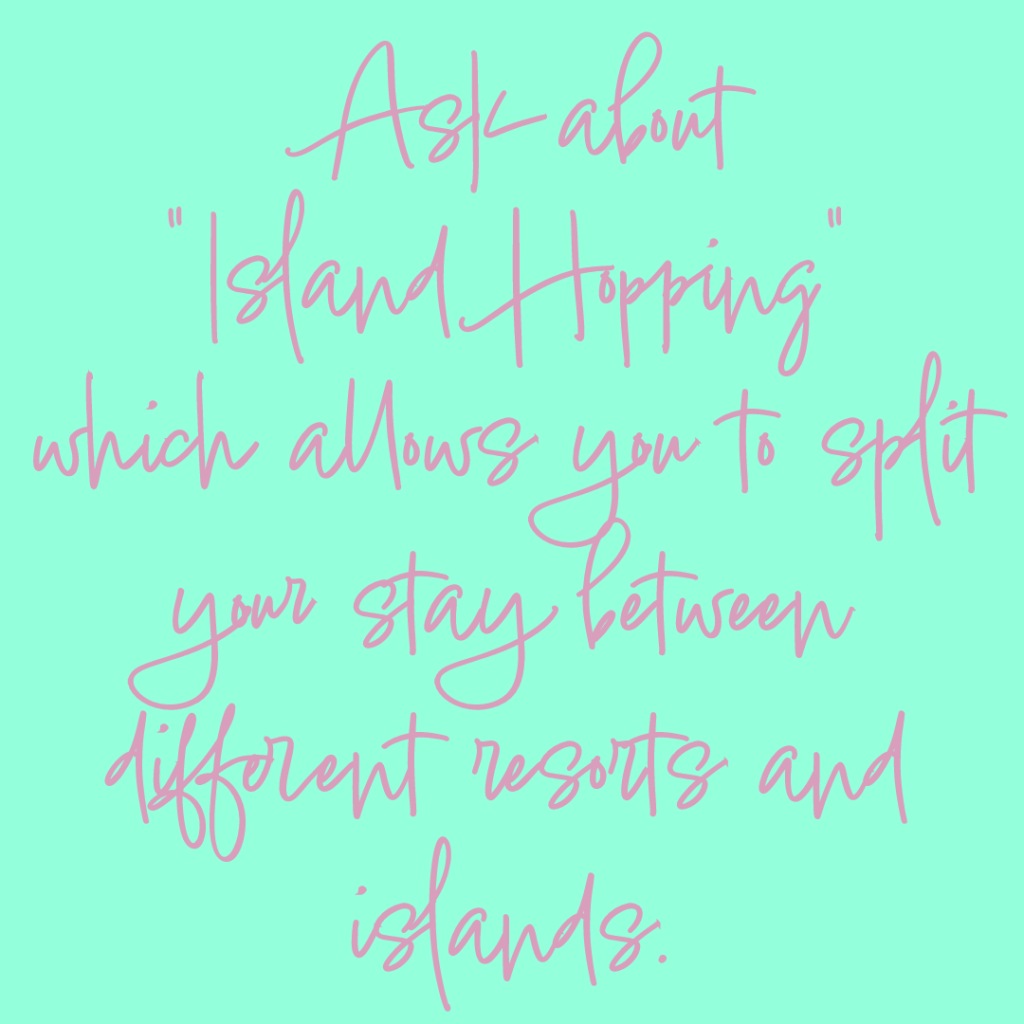 Ask about
"Island Hopping"
which allows you to split
your stay between
different resorts and
islands.